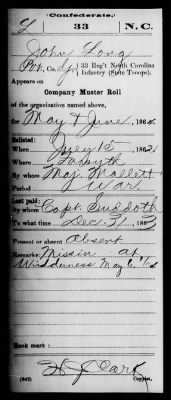 (Confederate.)
L 33 N.C.
John Long
Pvt., Co. I, 33 Reg't North Carolina
Infantry (State Troops).
Appears on
Company Muster Roll
of the organization named above,
for May & June, 1864.
Enlisted:
When July 15, 1862
Where Forsyth
By whom Maj. Mallett
Period War
Last paid:
By whom Capt. Suddoth
To what time Dec. 31, 1863
Present or absent Absent
Remarks: Missin at
Wilderness May 6, '64
Book mark:
(642) Copyist.